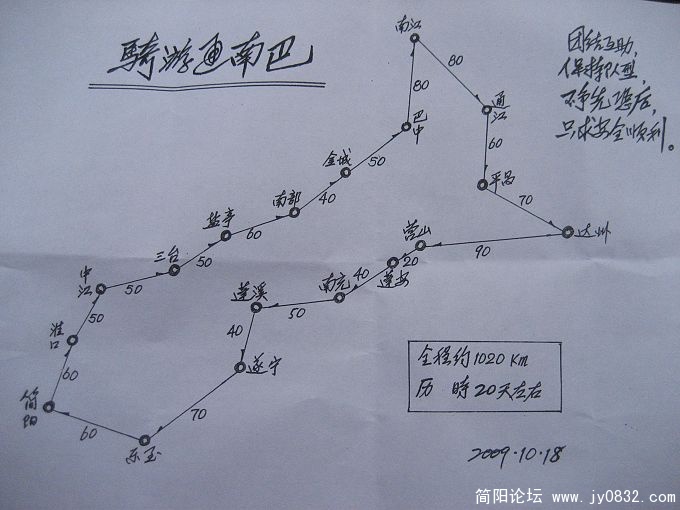 骑游通南巴
团结互助，
保持队型，
不争先恐后，
只求安全顺利。
南江
80
80
通江
巴中
60
平昌
70
达州
金城
50
南部
40
盐亭
60
三台
50
中江
50
淮口
50
简阳
60
营山
90
20
蓬安
40
南充
50
蓬溪
40
遂宁
70
乐至
60
全程约1020 Km
历 時20天左右
2009.10.18
简阳论坛 www.jy0832.com